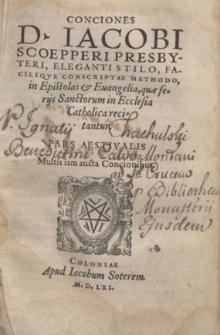 CONCIONES
D. IACOBI
SCOEPPERI PRESBY-
TERI, ELEGANTI STILO, FA-
CILIQVE CONSCRIPTAE METHODO,
in Epistolas & Euangelia, quæ fe-
rijs Sanctorum in Ecclesia
Catholica reci-
tantur.
P. Ignatij
Benedictini Calvo-Montani
ad S. Crucem
Bibliothecæ
Monasterii
Ejusdem
PARS AESTIVALIS
Multis iam aucta Concionibus.
COLONIAE
Apud Iacobum Soterem.
M. D. LXI.